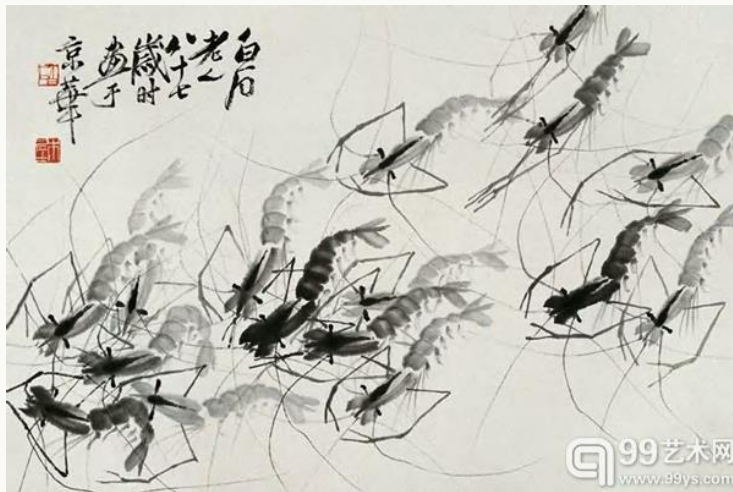 白石
老人
八十七
歲时
画于
京華
99艺术网
www.99ys.com